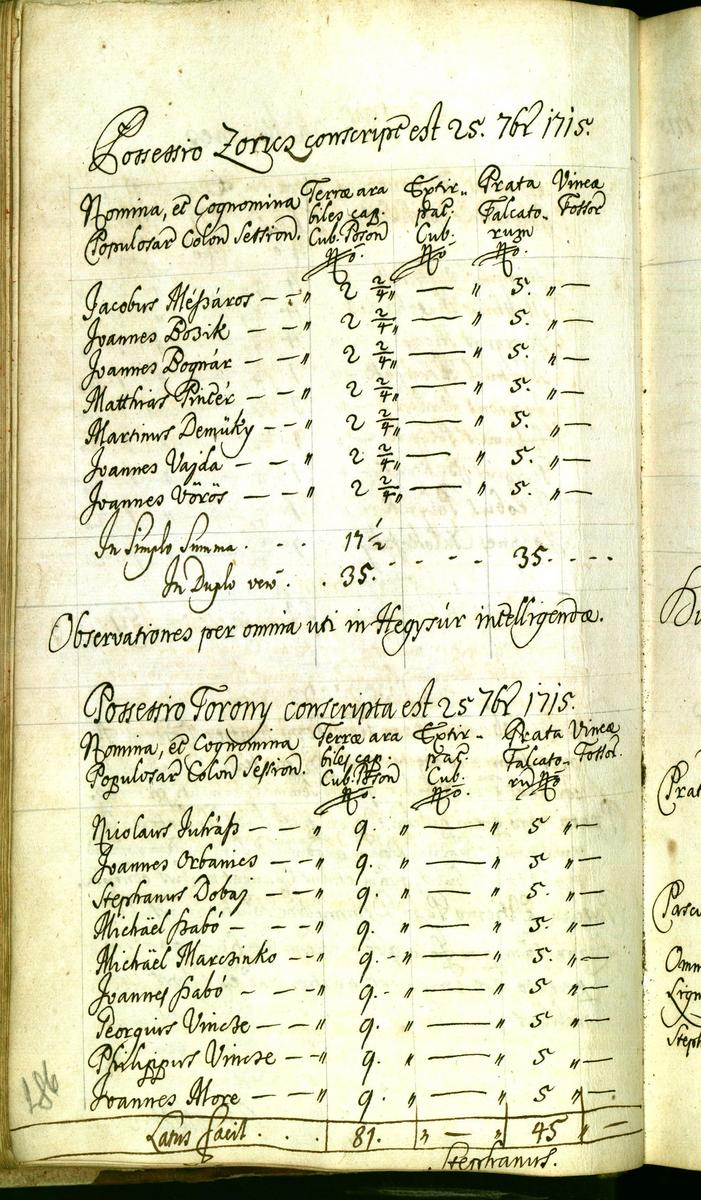 Possessio Zorics conscript est 25. 7br 1715.
Nomina, et Cognomina Terræ ara Extir- Prata Vineæ
Populosar Colon Session. biles cap. pat. Falcato- Fossor
Cub. Poson Cub. rum
No. No. No.
Jacobus Méßáros — — " 2 2/4 " — " 5. " —
Joannes Bozik — — " 2 2/4 " — " 5. " —
Joannes Bognár — — " 2 2/4 " — " 5. " —
Matthias Pinčér — — " 2 2/4 " — " 5. " —
Martinus Demüky — — " 2 2/4 " — " 5. " —
Joannes Vajda — — " 2 2/4 " — " 5. " —
Joannes Vörös — — " 2 2/4 " — " 5. " —
In Simplo Summa . . . 17 1/2
In Duplo vero . . 35. - - - - 35. - - -
Observationes per omnia uti in Hegysúr intelligendæ.
Possessio Torony conscripta est 25 7br 1715.
Nomina, et Cognomina Terræ ara Extir- Prata Vineæ
Populosar Colon Session. biles cap. pat. Falcato- Fossor.
Cub. Poson Cub. rum No
No. No.
Nicolaus Juháß — — " 9. " — " 5 " —
Joannes Orbanics — — " 9. " — " 5 " —
Stephanus Dobaj — " 9. " — " 5. " —
Michäel ßabó — — — " 9. " — " 5. " —
Michäel Marczinko — — " 9. - " — " 5. " —
Joannes ßabó — — " 9. - " — " 5 " —
Georgius Vincze — — " 9. " — " 5 " —
Philippus Vincze — — " 9. " — " 5 " —
Joannes More — — " 9. " — " 5 " —
Latus facit . . . 81. " — " 45 " —
Stephanus.
186